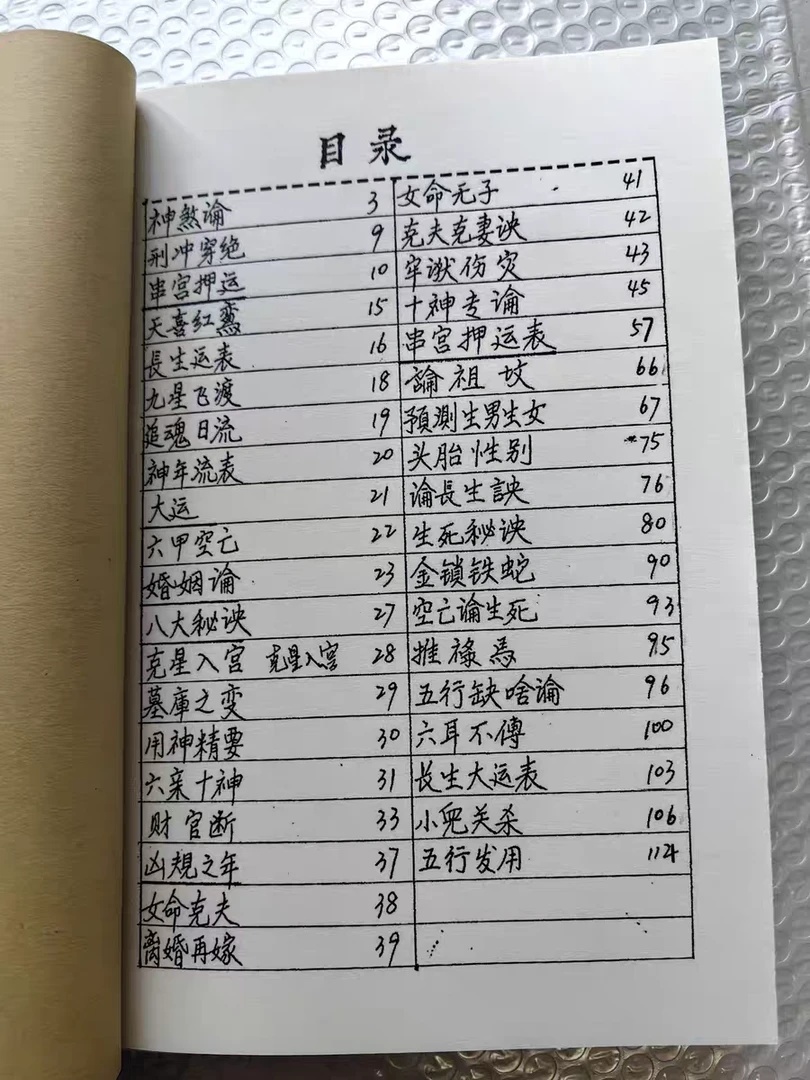 目录
神煞论 3
刑冲穿绝 9
串宫押运 10
天喜红鸾 15
長生运表 16
九星飞渡 18
追魂日流 19
神年流表 20
大运 21
六甲空亡 22
婚姻论 23
八大秘诀 27
克星入宫 克星入宫 28
墓庫之变 29
用神精要 30
六亲十神 31
财官断 33
凶規之年 37
女命克夫 38
离婚再嫁 39
女命无子 41
克夫克妻诀 42
牢狱伤灾 43
十神专论 45
串宫押运表 57
論祖坟 66
預測生男生女 67
头胎性别 75
論長生訣 76
生死秘诀 80
金锁铁蛇 90
空亡论生死 93
推禄焉 95
五行缺啥論 96
六耳不傳 100
长生大运表 103
小兒关杀 106
五行发用 112